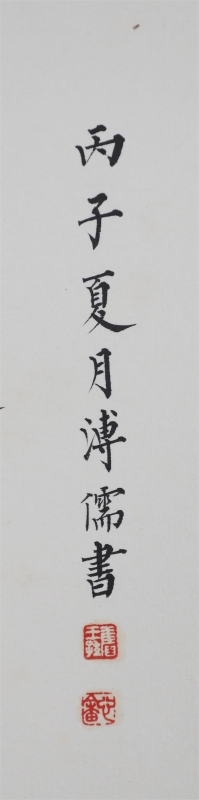 丙子夏月溥儒書